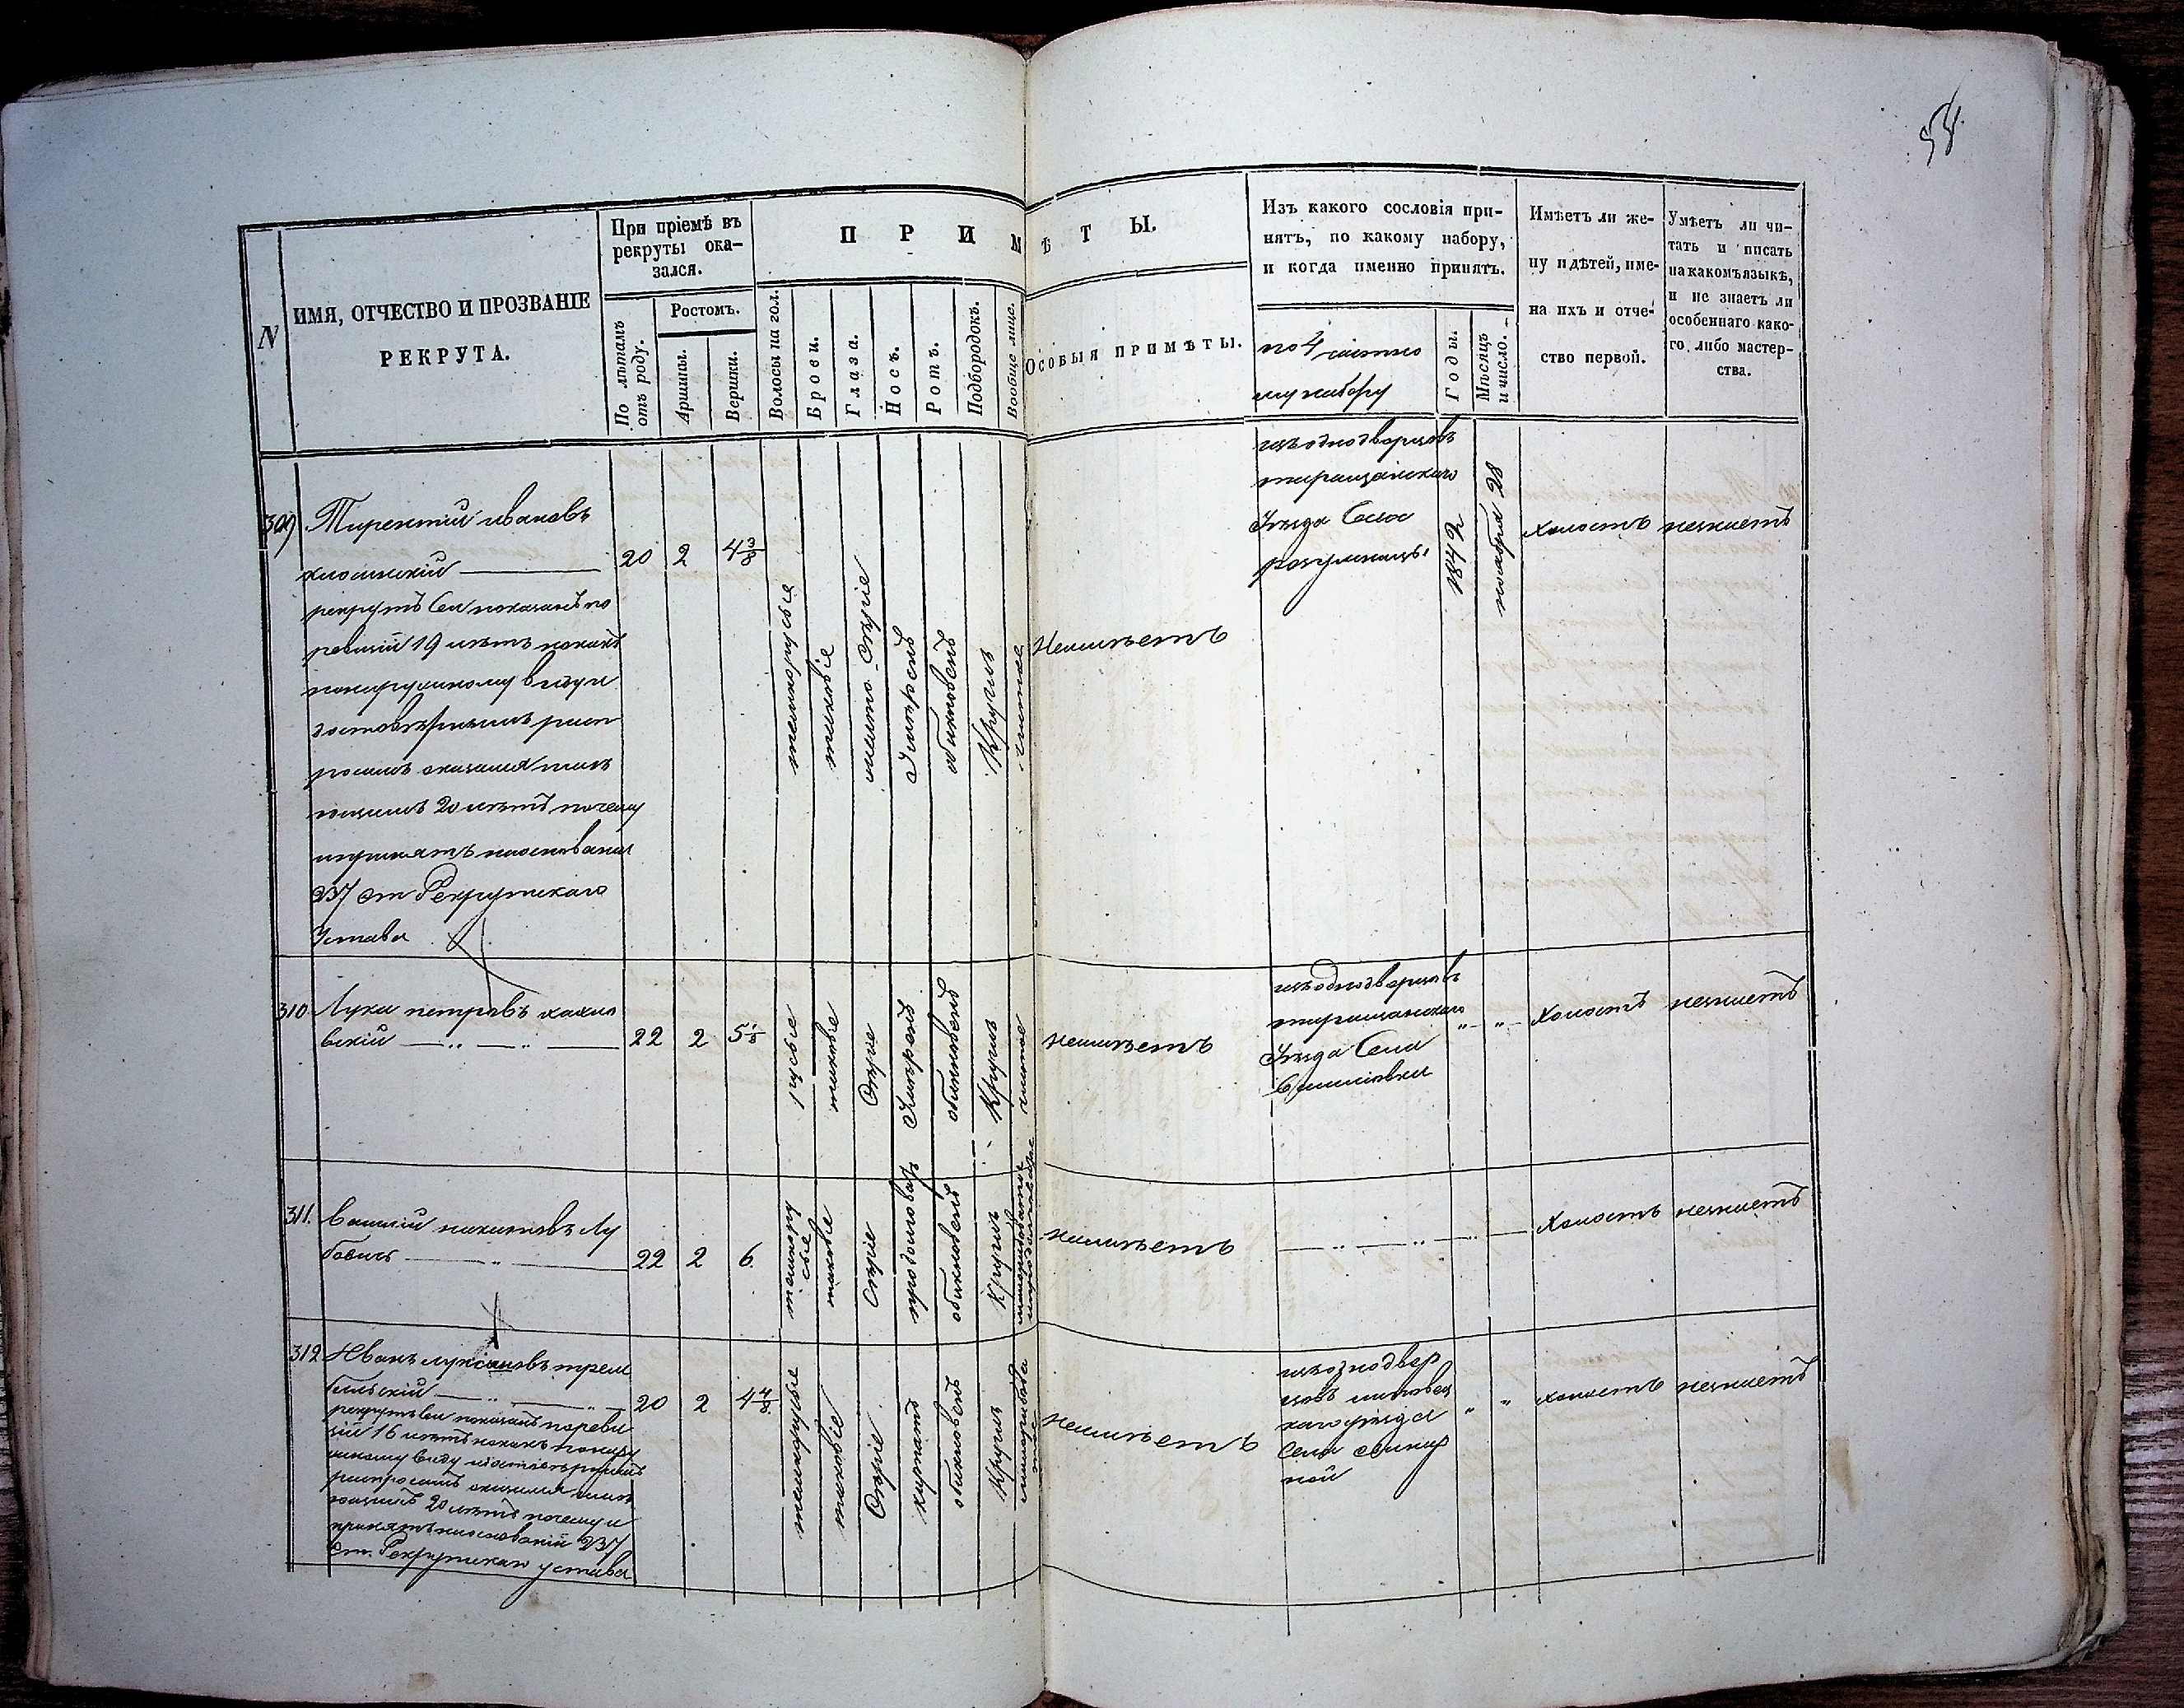 54.
N
ИМЯ, ОТЧЕСТВО И ПРОЗВАНІЕ
РЕКРУТА.
При пріемѣ въ
рекруты ока-
зался.
По лѣтамъ
отъ роду.
Ростомъ.
Аршины.
Вершки.
П Р И М Ѣ Т Ы.
Волосы на гол.
Брови.
Глаза.
Носъ.
Ротъ.
Подбородокъ.
Вообще лице.
ОСОБЫЯ ПРИМѢТЫ.
Изъ какого сословія при-
нятъ, по какому набору,
и когда именно принятъ.
по 4 частно
му набору
Годы.
Мѣсяцъ
и число.
Имѣетъ ли же-
ну и дѣтей, име-
на ихъ и отче-
ство первой.
Умѣетъ ли чи-
тать и писать
на какомъ языкѣ,
и не знаетъ ли
особеннаго како-
го либо мастер-
ства.
309
Тирентий ивановъ
рекрутъ Сей показанъ по
ревизій 19 лѣтъ но какъ
понаружному виду и
росомъ оказался имѣ
ющимъ 20 лѣтъ почему
и принятъ наосновании
237 ст Рекрутскаго
Устава
20
2
4 3/8
темнорусые
таковіе
Умѣренъ
обикновенъ
Круглъ
чистое
Неимѣетъ
изъ однодворцовъ
таращанскаго
Уѣзда Села
1842
ноября 28
холостъ
незнаетъ
310
Лука петровъ
вскій
22
2
5 1/8
русые
таковые
Серіе
Умѣренъ
обикновенъ
Круглъ
чистое
неимѣетъ
изъ однодворцовъ
таращанскаго
Уѣзда Села
" "
Холостъ
незнаетъ
311.
Василий Лу
22
2
6.
темнору
сые
таковіе
Серіе
продолговат
обикновенъ
Круглъ
неимѣетъ
Холостъ
незнаетъ
312
Иванъ трем
бельскій
рекрутъ Сей показанъ по реви
зіи 16 лѣтъ но какъ понару
жному виду
распросамъ оказался имѣ
ющимъ 20 лѣтъ почему и
принятъ наоснованій 237
Ст. Рекрутскаго устава
20
2
4 4/8
темнорусые
таковіе
Серіе
курнатъ
обикновенъ
Круглъ
неимѣетъ
изъ однодвор
цовъ липовец
каго уѣзда
Села
" "
холостъ
незнаетъ